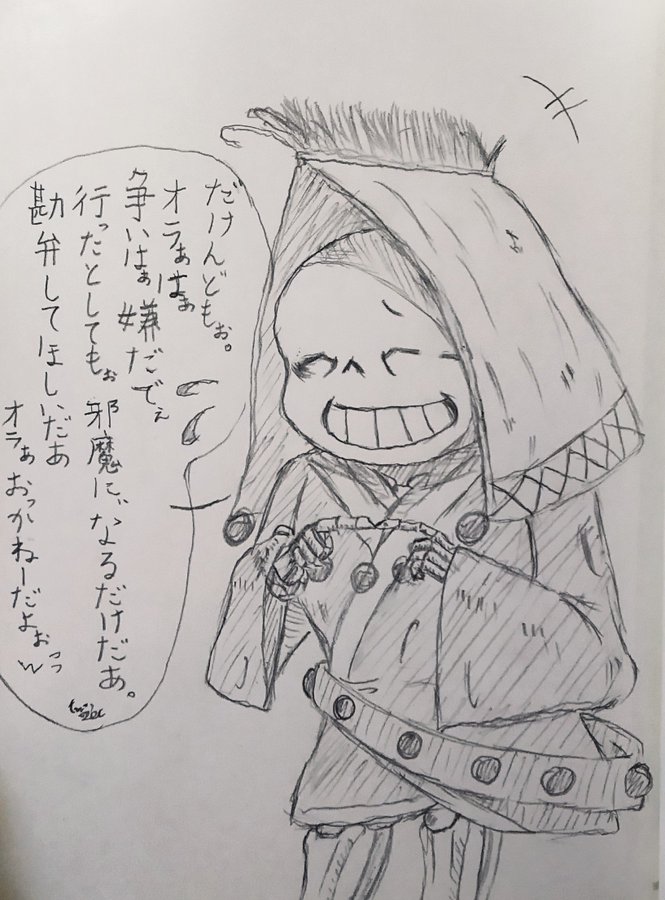 だけんどもぉ。
オラぁはぁ
争いはぁ嫌だでぇ
行ったとしてもぉ邪魔になるだけだあ。
勘弁してほしいだあ
オラぁおっかねーだよぉっっw